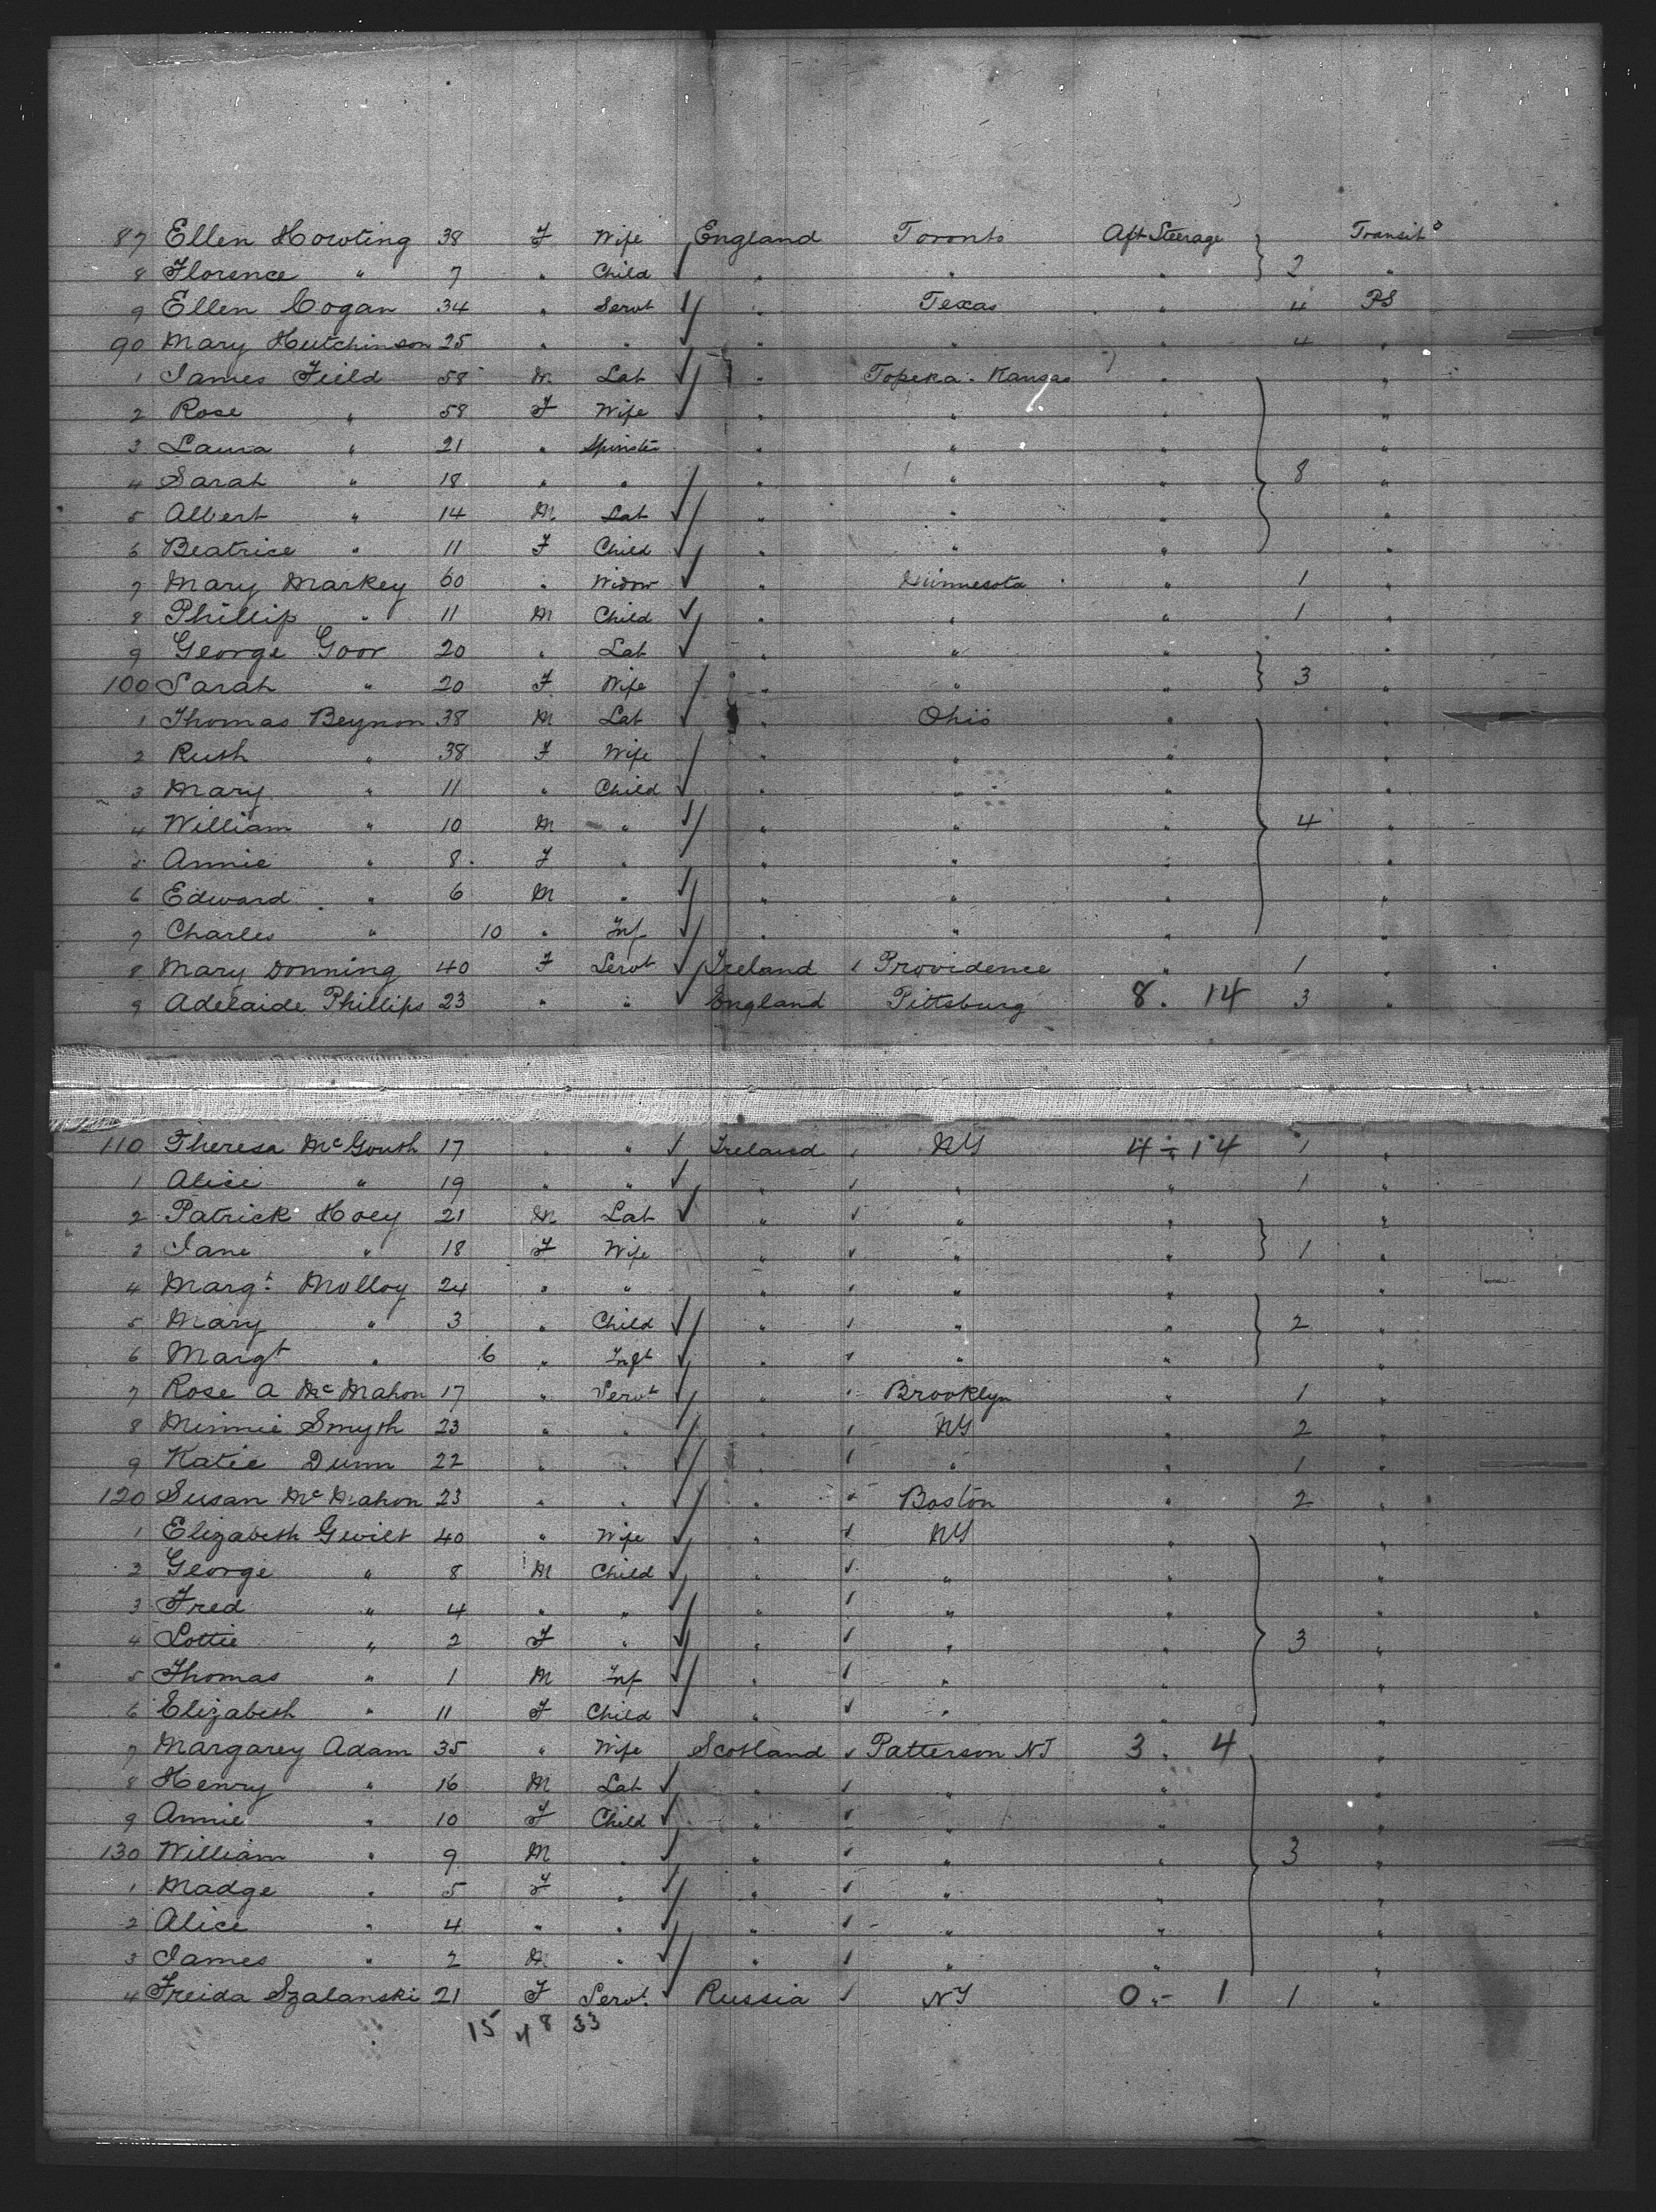 87 Ellen Howting 38 F Wife England Toronto Aft Steerage Transit
8 Florence " 7 " Child " " " 2 "
9 Ellen Cogan 34 " Servt " Texas " 4 PS
90 Mary Hutchinson 25 " " " " " 4 "
1 James Field 58 M Lab " Topeka. Kansas " "
2 Rose " 58 F Wife " " " "
3 Laura " 21 " Spinster " " " "
4 Sarah " 18 " " " " " 8 "
5 Albert " 14 M Lab " " " "
6 Beatrice " 11 F Child " " " "
7 Mary Markey 60 " Widow " Minnesota " 1 "
8 Phillip " 11 M Child " " " 1 "
9 George Goor 20 " Lab " " " "
100 Sarah " 20 F Wife " " " 3 "
1 Thomas Beynon 38 M Lab " Ohio " "
2 Ruth " 38 F Wife " " " "
3 Mary " 11 " Child " " " "
4 William " 10 M " " " " 4 "
5 Annie " 8 F " " " " "
6 Edward " 6 M " " " " "
7 Charles " 10 " Inf " " " "
8 Mary Donning 40 F Servt Ireland Providence " 1 "
9 Adelaide Phillips 23 " " England Pittsburg 8 . 14 3 "
110 Theresa McGouth 17 " " Ireland NY 4 - 14 1 "
1 Alice " 19 " " " " " 1 "
2 Patrick Hoey 21 M Lab " " " "
3 Jane " 18 F Wife " " " 1 "
4 Margt. Molloy 24 " " " " " "
5 Mary " 3 " Child " " " 2 "
6 Margt " 6 " Inft " " " "
7 Rose A McMahon 17 " Servt " Brooklyn " 1 "
8 Minnie Smyth 23 " " " NY " 2 "
9 Katie Dunn 22 " " " " " 1 "
120 Susan McMahon 23 " " " Boston " 2 "
1 Elizabeth Gwilt 40 " Wife " NY " "
2 George " 8 M Child " " " "
3 Fred " 4 " " " " " "
4 Lottie " 2 F " " " " 3 "
5 Thomas " 1 M Inf " " " "
6 Elizabeth " 11 F Child " " " "
7 Margarey Adam 35 " Wife Scotland Patterson NJ 3 . 4 "
8 Henry " 16 M Lab " " " "
9 Annie " 10 F Child " " " "
130 William " 9 M " " " " 3 "
1 Madge " 5 F " " " " "
2 Alice " 4 " " " " " "
3 James " 2 M " " " " "
4 Freida Szalanski 21 F Servt. Russia NY 0 - 1 1 "
15 48 33